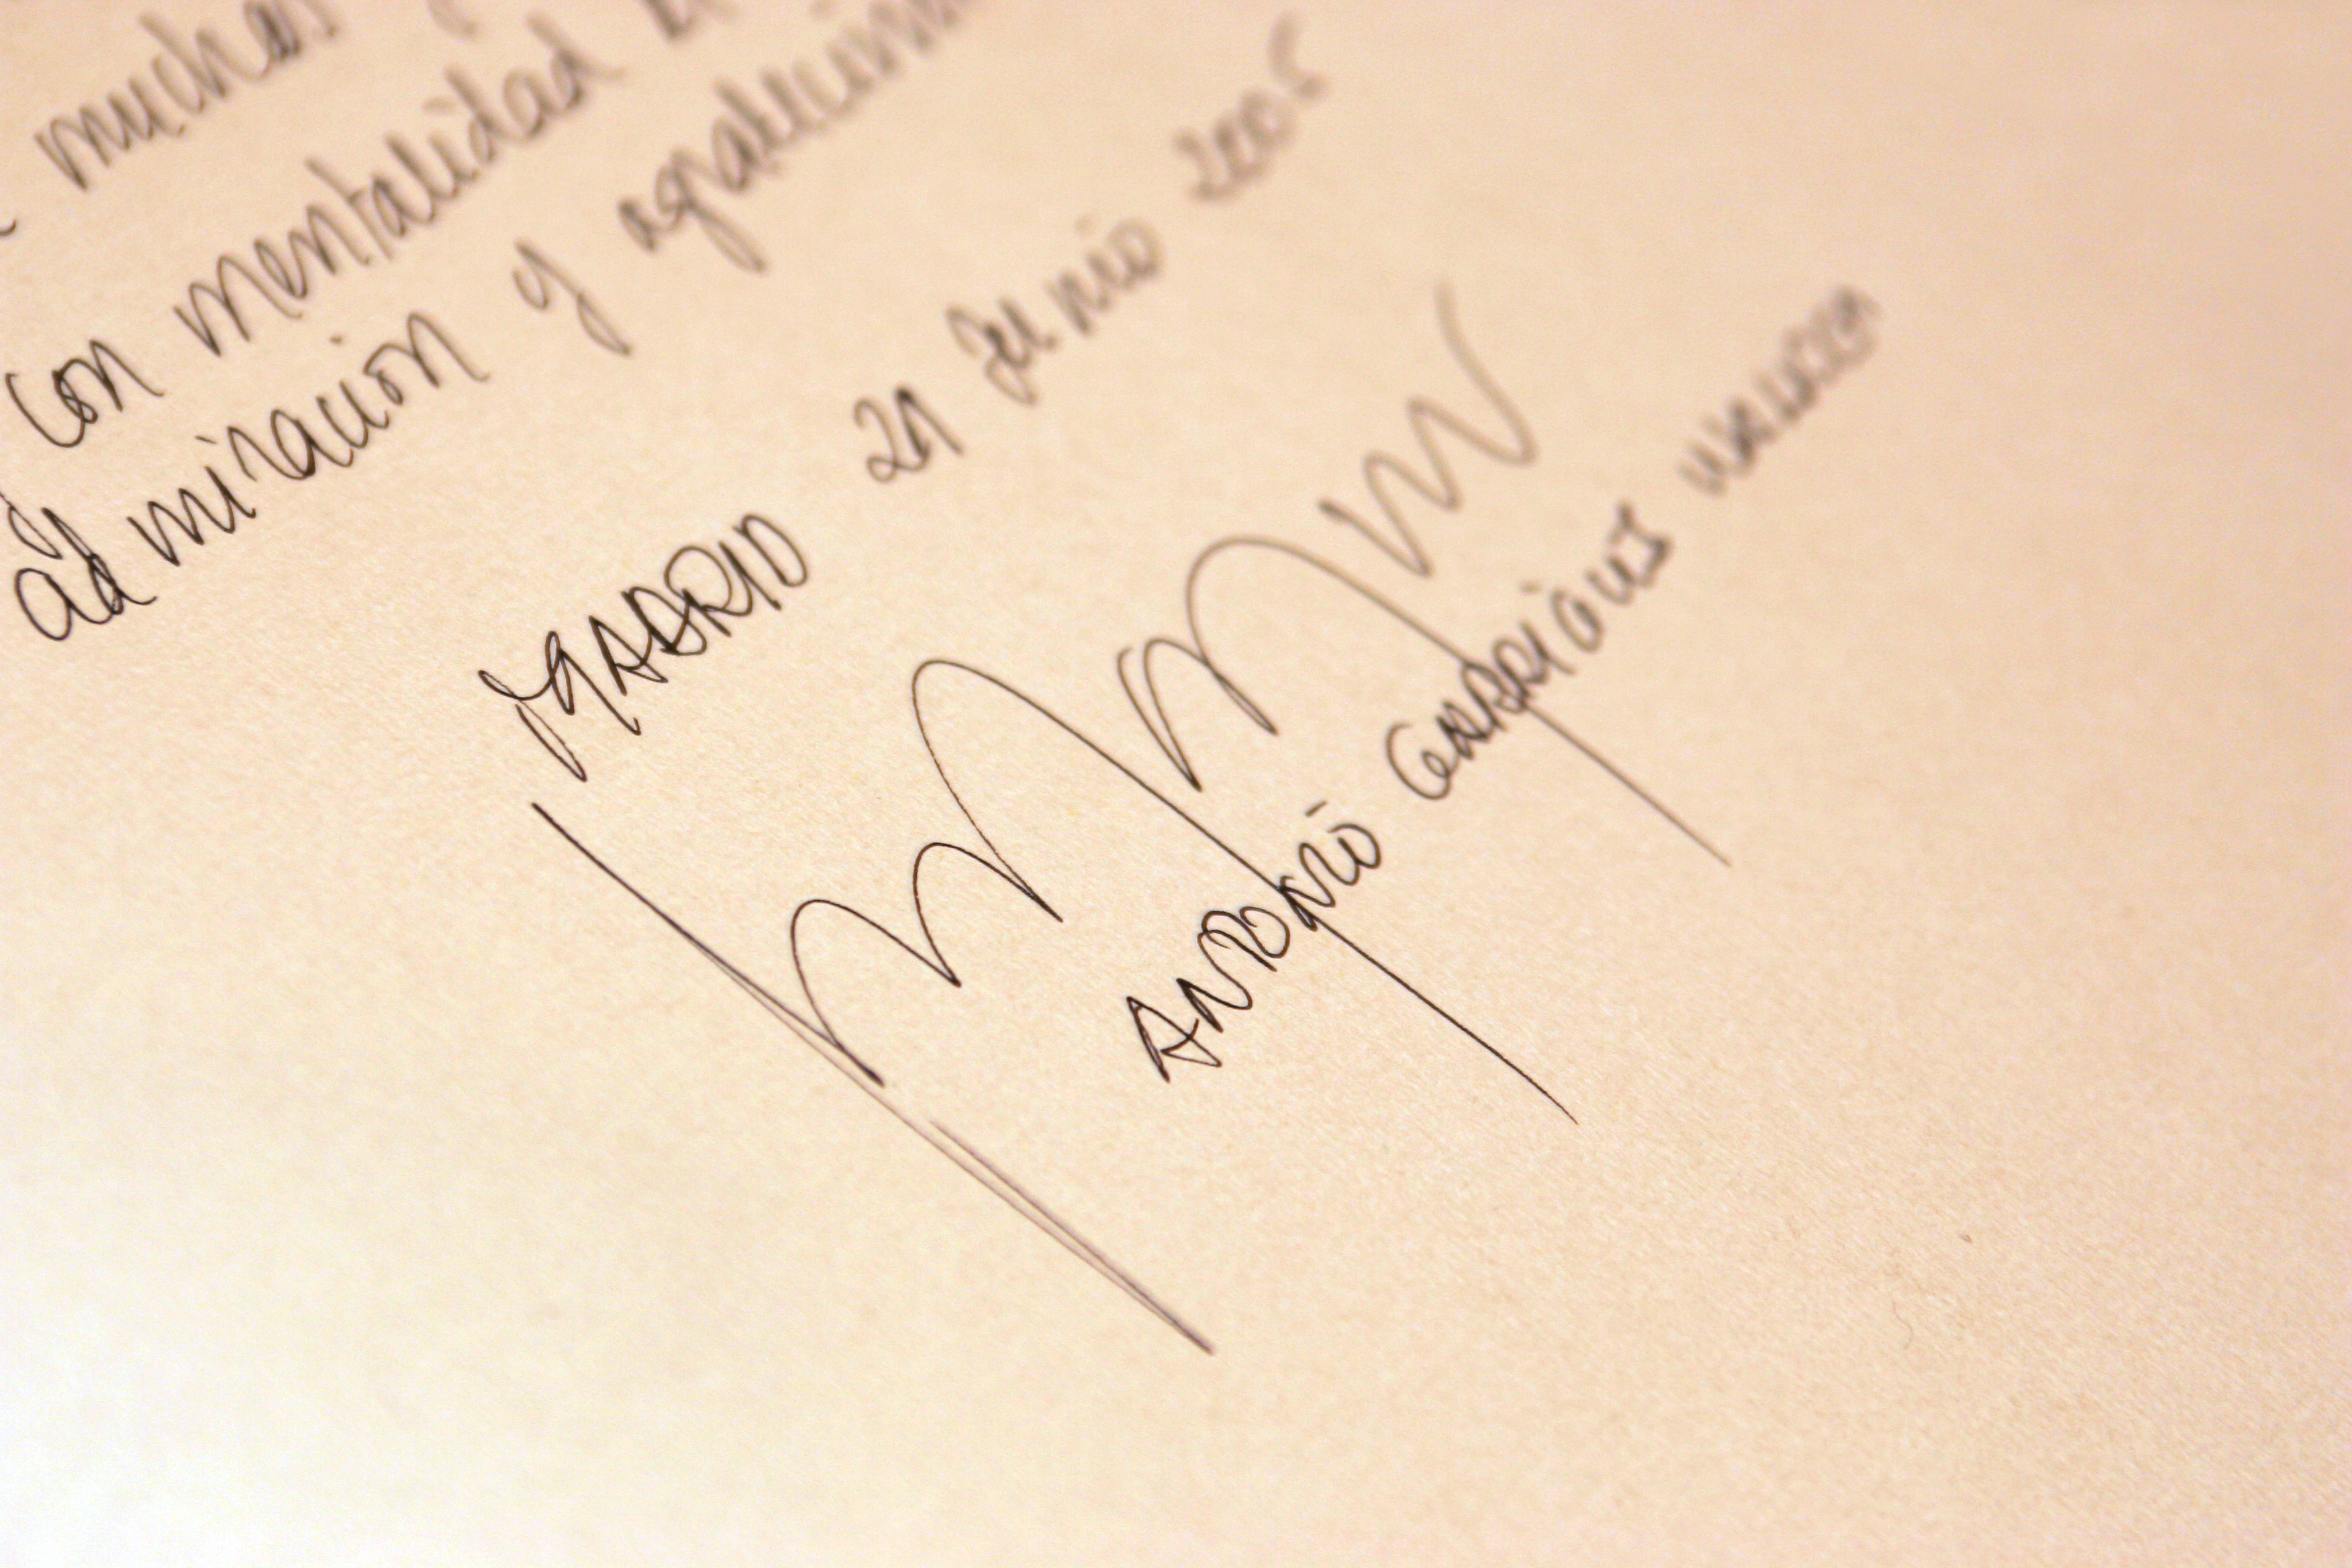 muchas
con mentalidad
admiración y
MADRID 21 Junio 2005
ANTONIO GARRIGUES WALKER